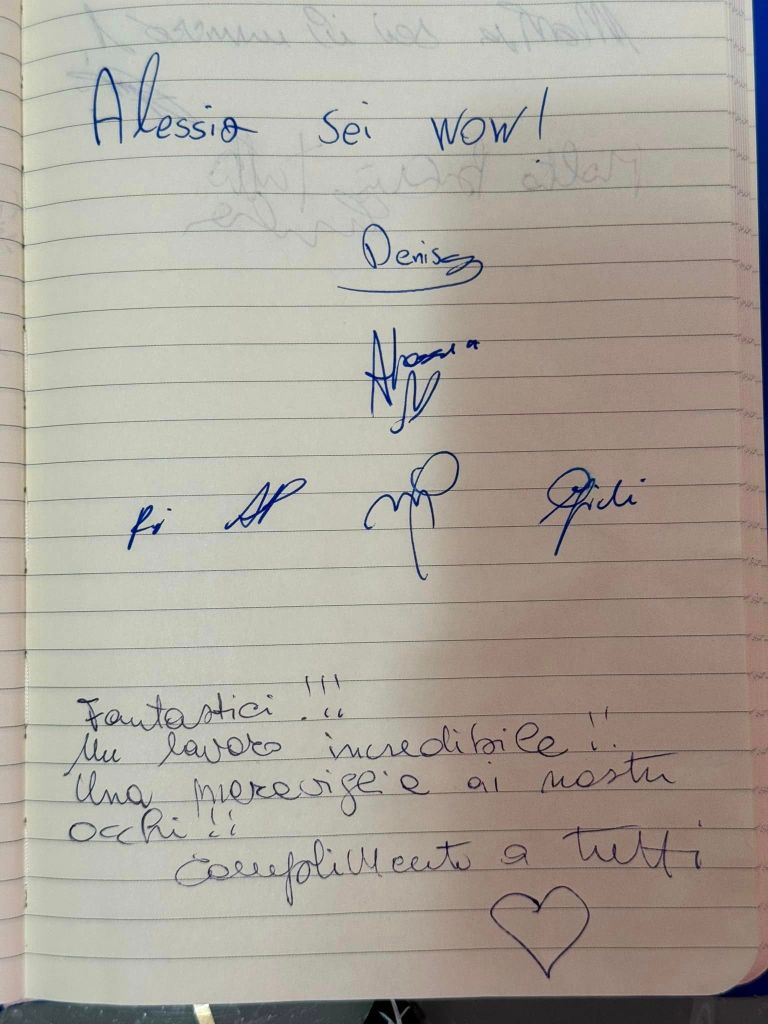 Alessio sei wow!
Denise
Fantastici !!!
Un lavoro incredibile !!
Una meraviglia ai nostri
occhi !!
complimenti a tutti